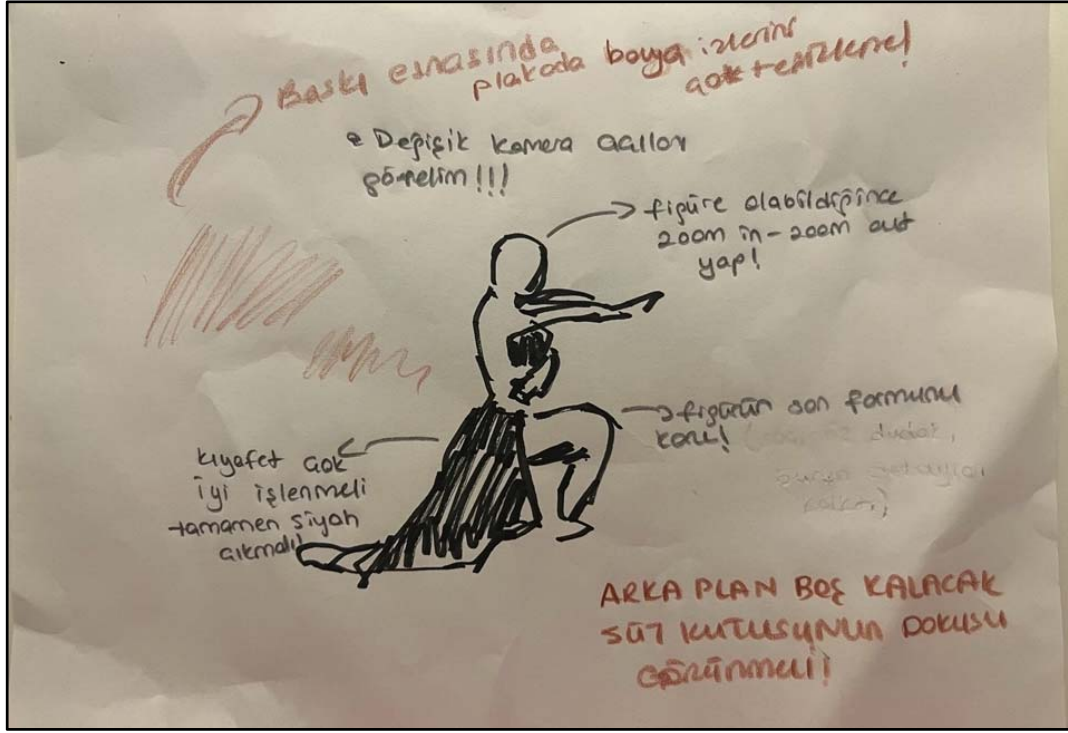 Baskı esnasında
plakada boya izlerini
çok temizleme!
Değişik kamera açıları
görelim!!!
figüre olabildiğince
zoom in - zoom out
yap!
figürün son formunu
koru!
kıyafet çok
iyi işlenmeli
tamamen siyah
çıkmalı!
ARKA PLAN BOŞ KALACAK
SÜT KUTUSUNUN DOKUSU
GÖRÜNMELİ!